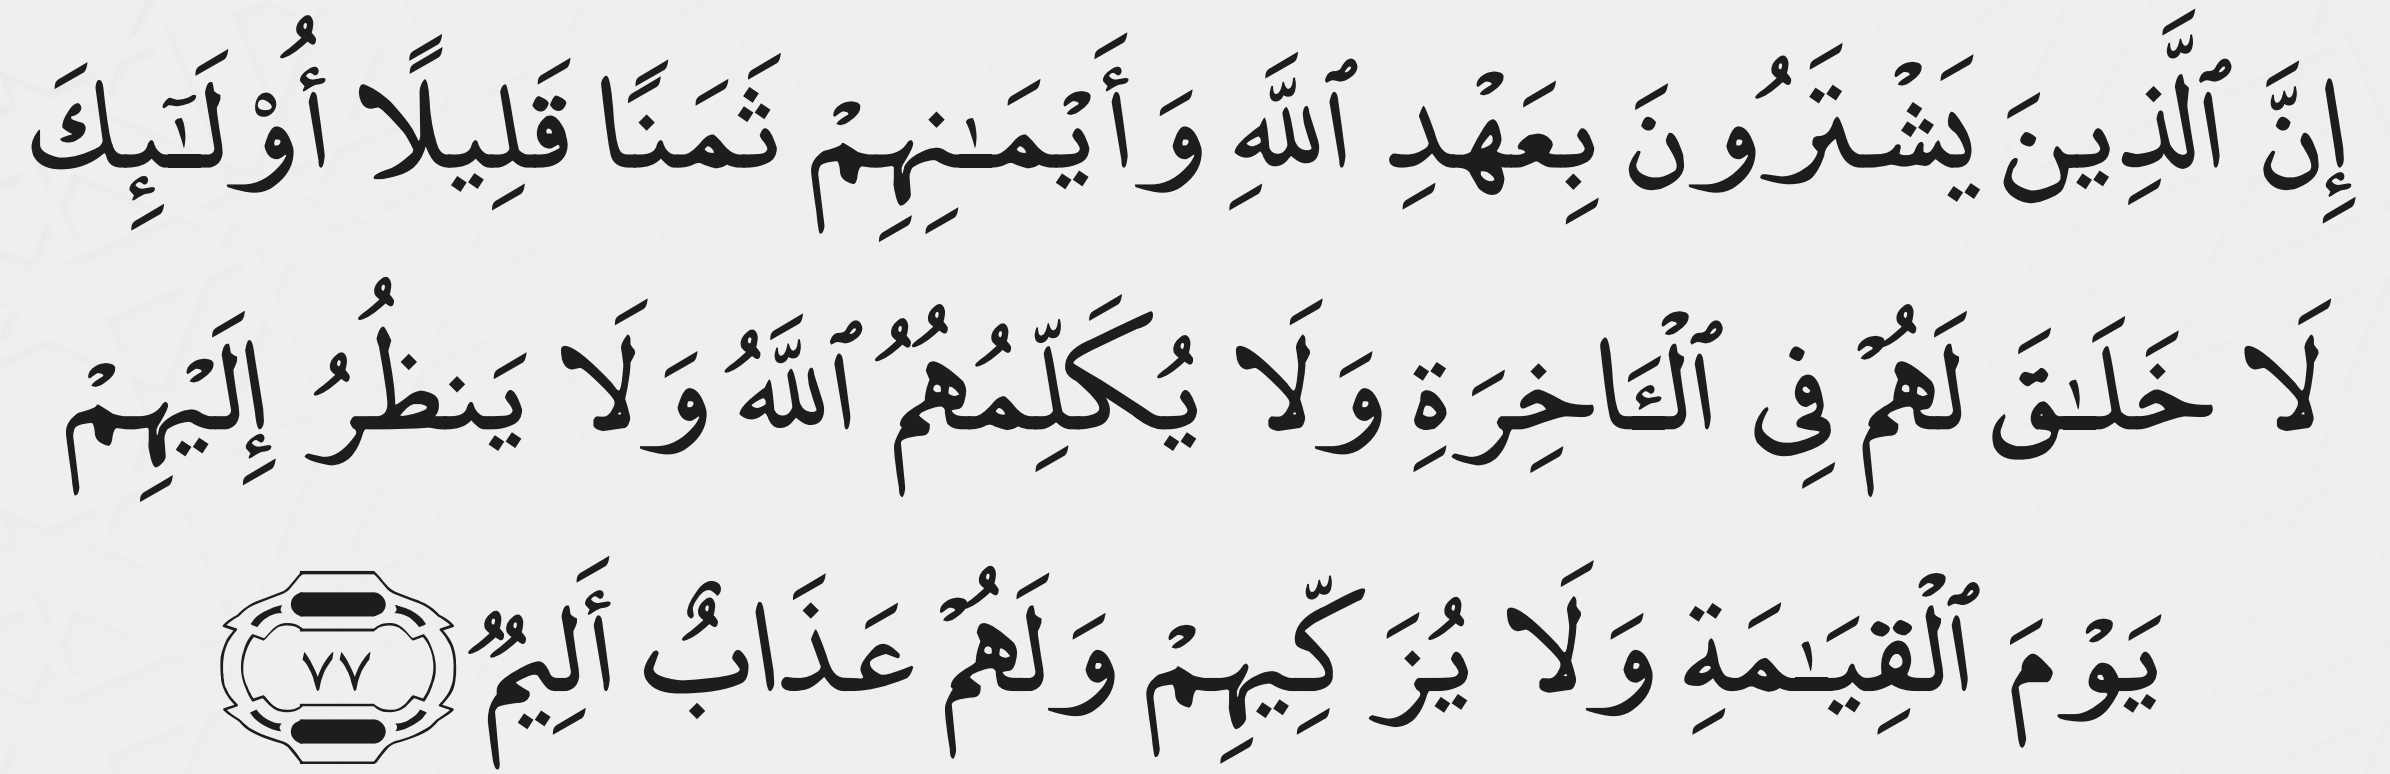 إِنَّ ٱلَّذِينَ يَشْتَرُونَ بِعَهْدِ ٱللَّهِ وَأَيْمَـٰنِهِمْ ثَمَنًا قَلِيلًا أُوْلَـٰٓئِكَ
لَا خَلَـٰقَ لَهُمْ فِى ٱلْـَٔاخِرَةِ وَلَا يُكَلِّمُهُمُ ٱللَّهُ وَلَا يَنظُرُ إِلَيْهِمْ
يَوْمَ ٱلْقِيَـٰمَةِ وَلَا يُزَكِّيهِمْ وَلَهُمْ عَذَابٌ أَلِيمٌ ٧٧